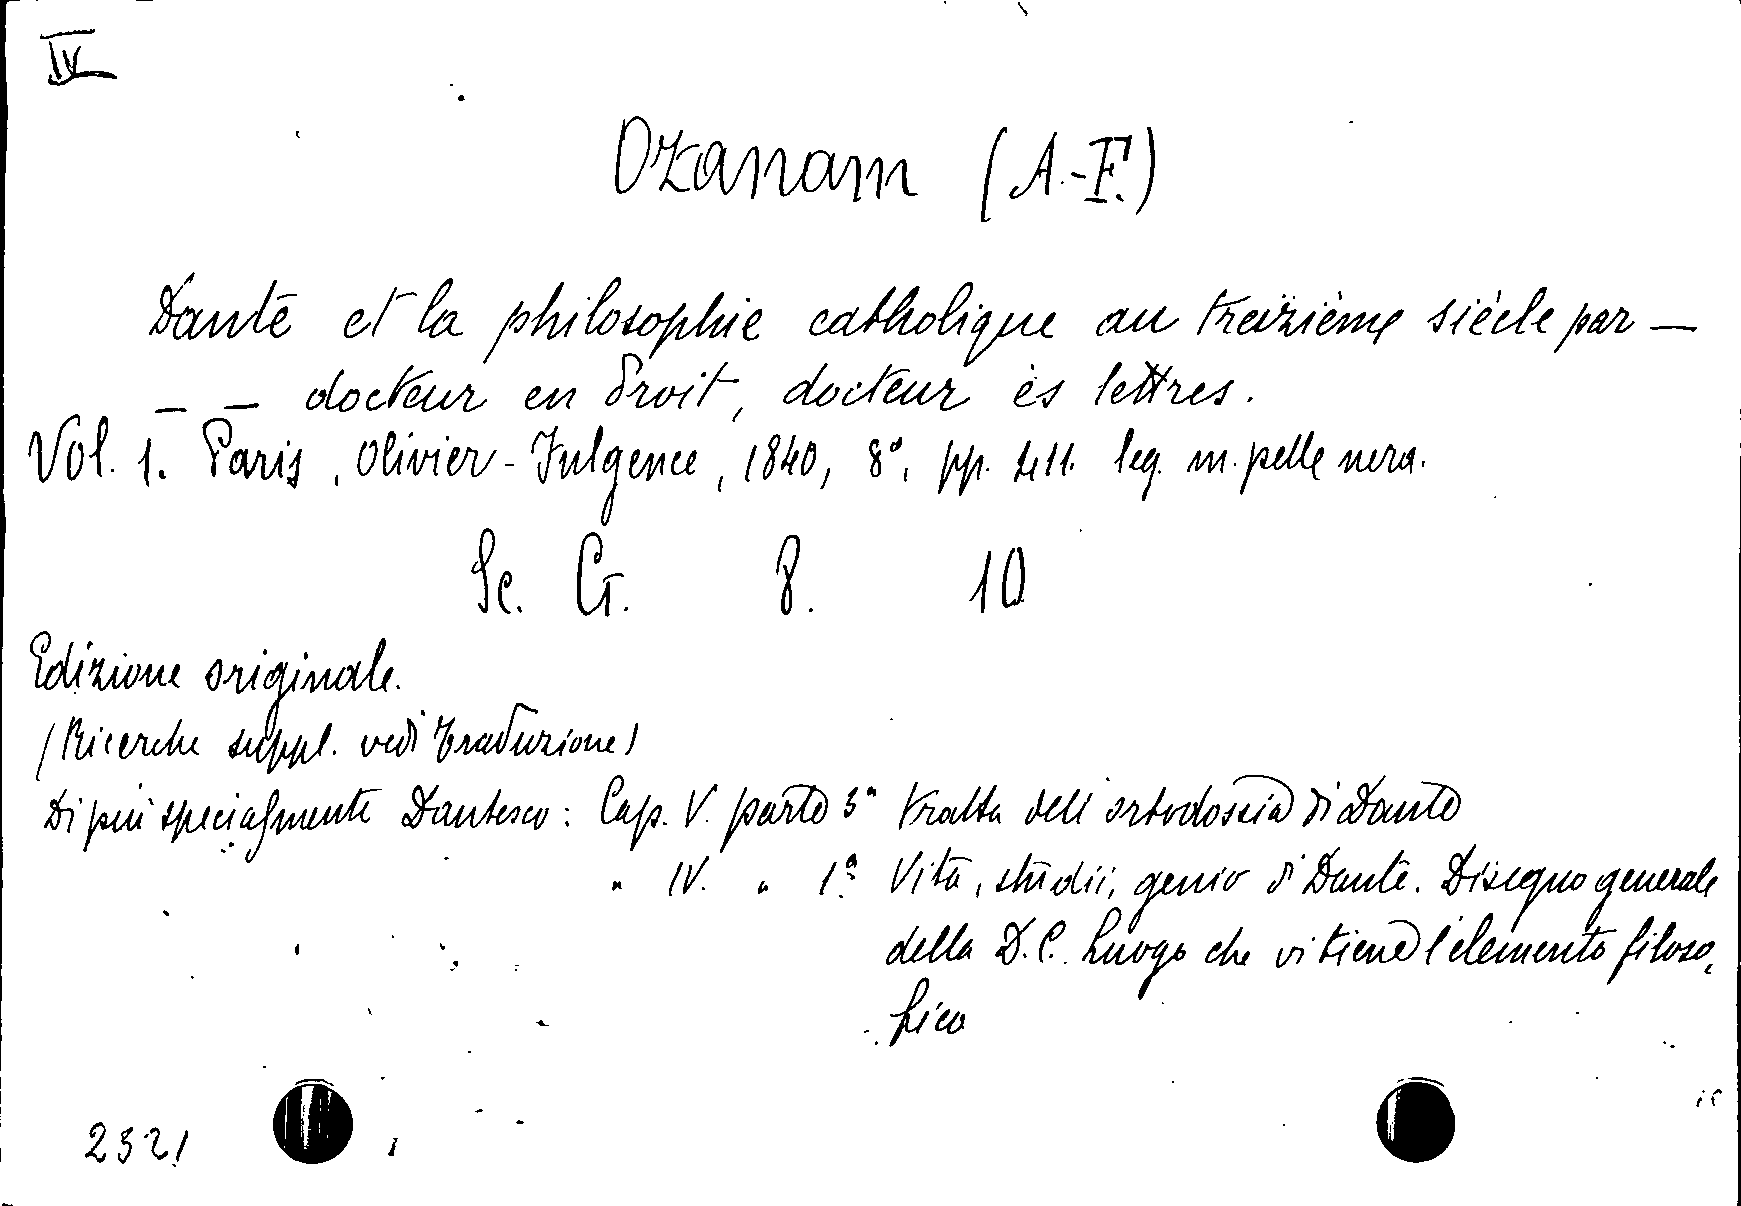 IV
Ozanam (A.-F.)
Dante et la philosophie catholique au treizième siècle par —
— — docteur en droit, docteur ès lettres.
Vol. 1. Paris, Olivier-Fulgence, 1840, 8°, pp. 411. leg. m. pelle nera.
Sc. G. 8. 10
Edizione originale.
(Ricerche suppl. vedi traduzione)
Di più specialmente Dantesco: Cap. V. parte 3ª tratta dell'ortodossia di Dante
" IV. " 1ª Vita, studii, genio di Dante. Disegno generale
della D.C. Luogo che vi tiene l'elemento filoso,
fico
2321